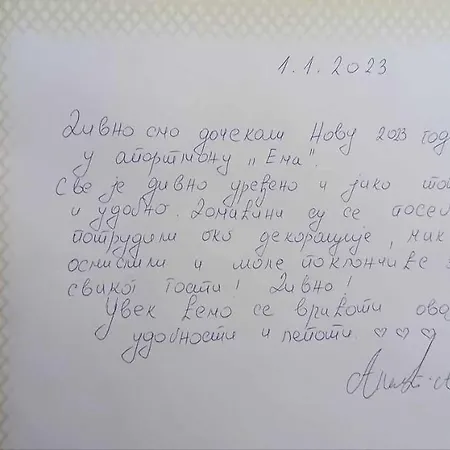 1.1.2023
Дивно смо дочекали Нову 2023 год
у апартману „Ема".
Све је дивно уређено и јако
и удобно. Домаћини су се посе
потрудили око декорације, чак
осмислили и мале поклончиће
сваког госта! Дивно!
Увек ћемо се враћати
удобности и лепоти ♡ ♡ ♡